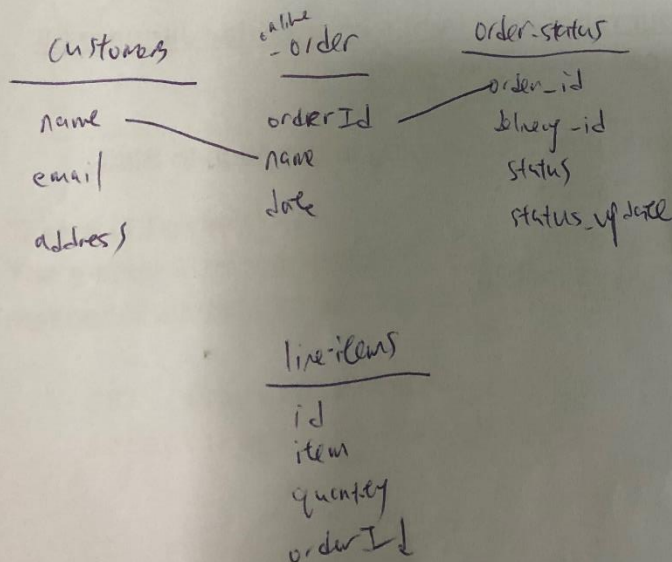 customers
name
email
address
online
-order
orderId
name
date
order-status
order_id
delivery-id
status
status_update
line-items
id
item
quantity
orderId